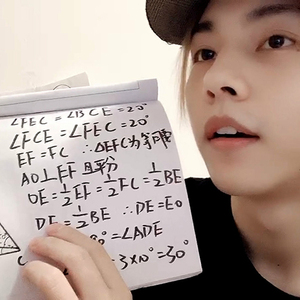 ∠FEC = ∠BCE = 20°
∠FCE = ∠FEC = 20°
EF = FC ∴△EFC为等腰
AO⊥EF 且平分
OE = ½EF = ½FC = ½BE
DE = ½BE ∴DE = EO
° = ∠ADE
= 3×10° = 30°